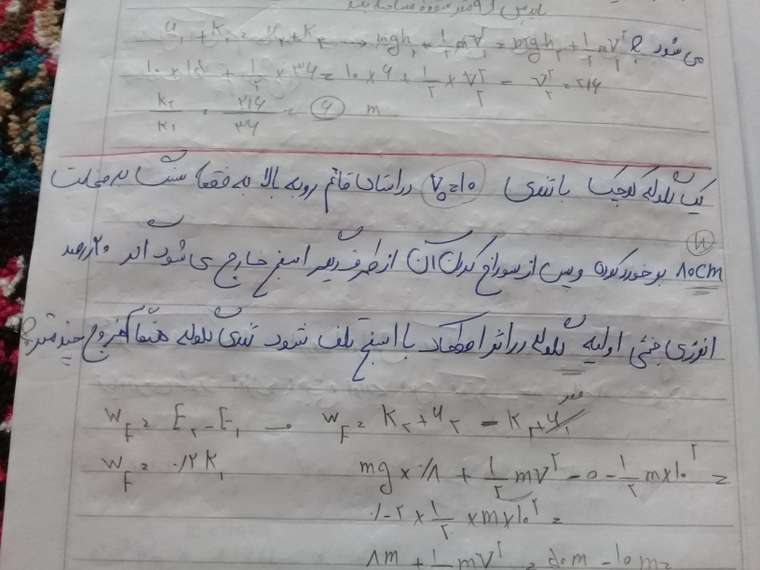 u₁ + k₁ = u₂ + k₂ → mgh₁ + ½mv₁² = mgh₂ + ½mv₂² می شود؟
۱۰ × ۱۵ + ½ × ۳۶ = ۱۰ × ۶ + ½ × v₂² = v₂² = ۲۱۶
k₂/k₁ = ۲۱۶/۳۶ = ۶ m
یک گلوله کوچک با تندی v₀=۱۰ در راستای قائم رو به بالا به قطعه به ضخامت
۸۰cm برخورد کرده و پس از سوراخ کردن آن از طرف دیگر اسفنج خارج می شود اگر ۲۰ درصد
انرژی جنبشی اولیه گلوله در اثر اصطکاک با اسفنج تلف شود تندی گلوله هنگام خروج چند متر؟
W_F = E₂ - E₁ → W_F = K₂ + u₂ - K₁ + u₁
W_F = ۰/۲ K₁ mg × ۰/۸ + ½mv² - ۰ - ½m×۱۰² =
-۰/۲ × ½ × m×۱۰² =
۸m + ½mv² = ۵۰m - ۱۰m =